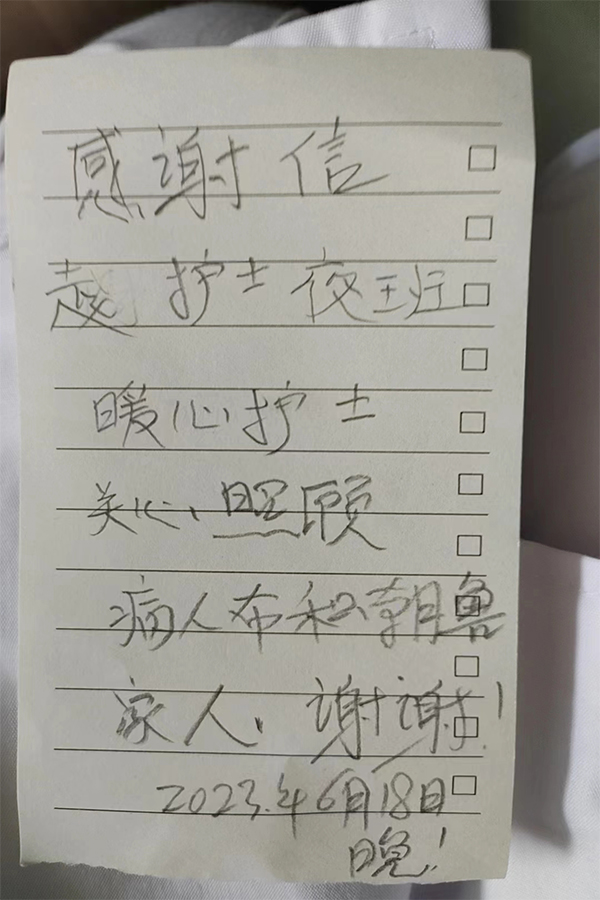 感谢信
护士夜班
暖心护士
关心、照顾
病人布和朝鲁
家人、谢谢!
2023.年6月18日
晚!